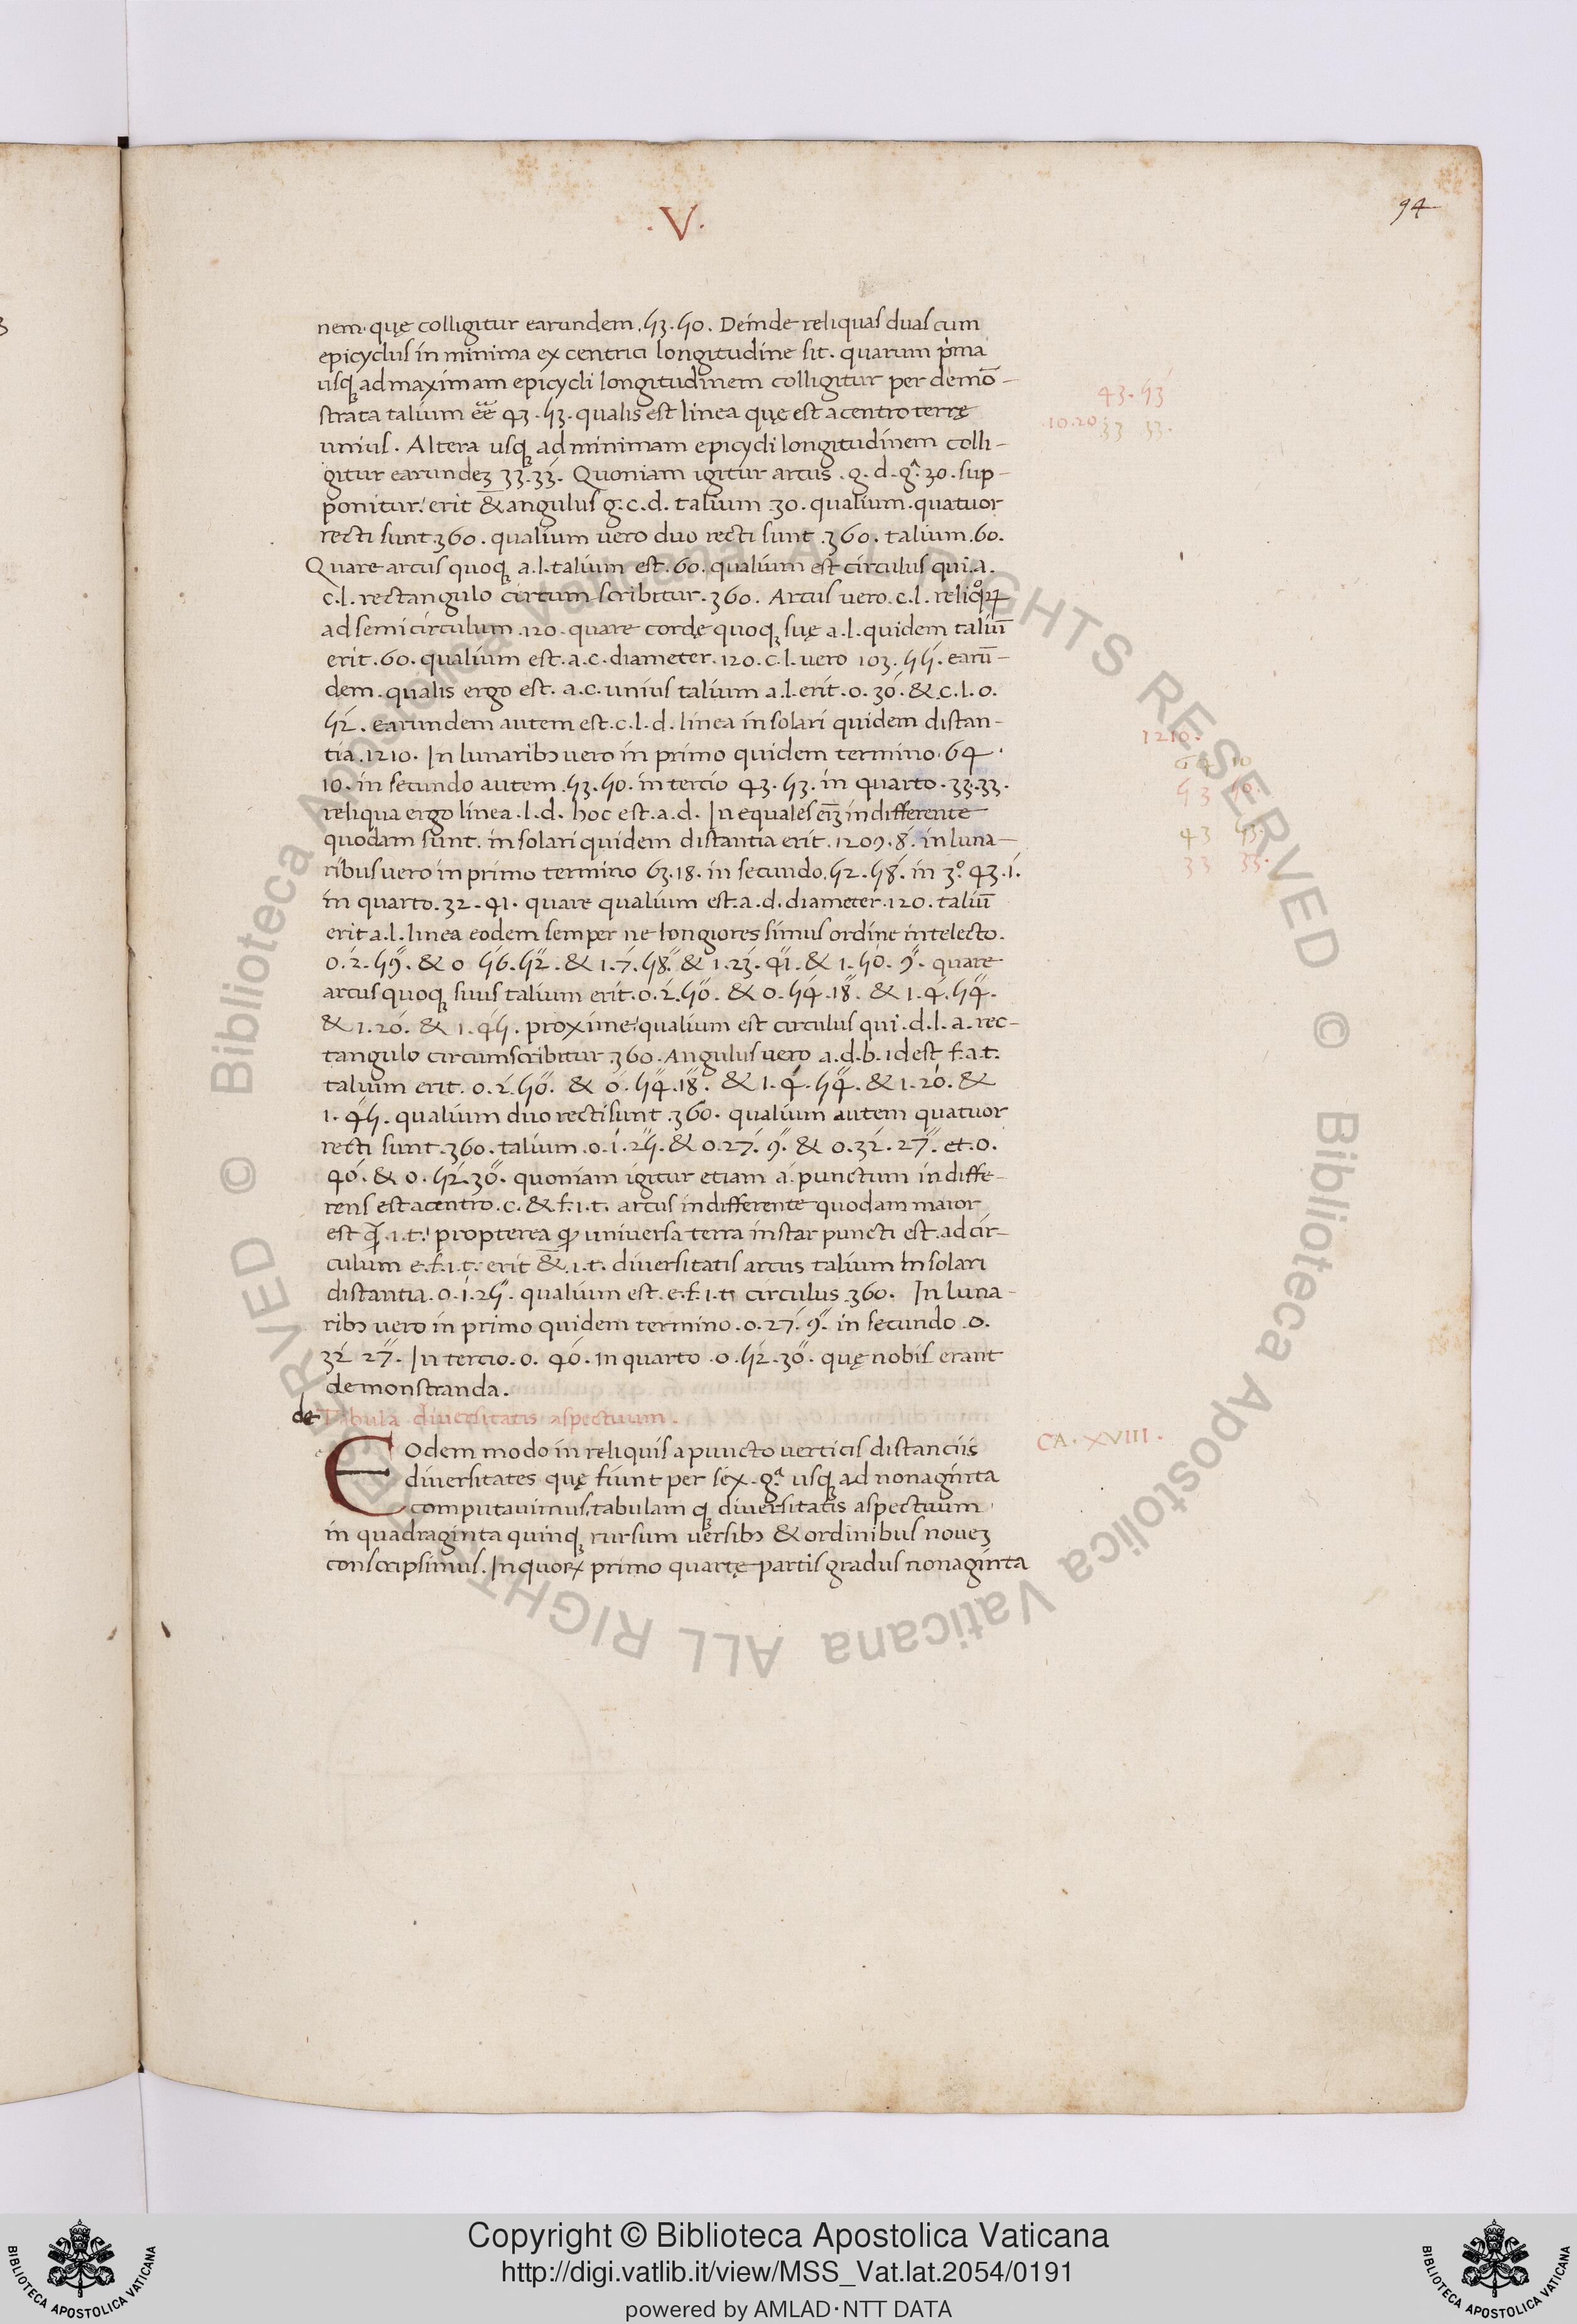 .V.
94
nem. quę colligitur earundem .53.50. Deinde reliquas duas cum
epicyclus in minima excentrici longitudine sit. quarum p̓ma
usqꝫ ad maximam epicycli longitudinem colligitur per demō-
strata talium eē̄ 43.53. qualis est linea quę est a centro terrę
unius. Altera usqꝫ ad minimam epicycli longitudinem colli-
gitur earundeꝫ 33.33. Quoniam igitur arcus .g.d.gᵃ.30. sup-
ponitur: erit & angulus g.c.d. talium 30. qualium quatuor
recti sunt 360. qualium vero duo recti sunt .360. talium .60.
Quare arcus quoqꝫ a.l. talium est .60. qualium est circulus qui .a.
c.l. rectangulo circumscribitur .360. Arcus vero .c.l. reliqoꝝ
ad semicirculum .120. quare cordę quoqꝫ suę a.l. quidem taliū
erit .60. qualium est .a.c. diameter .120. c.l. vero 103.55. earū-
dem. qualis ergo est. a.c. unius talium a.l. erit .0.30. & c.l.0.
52. earundem autem est .c.l.d. linea in solari quidem distan-
tia .1210. In lunaribꝫ vero in primo quidem termino .64.
10. in secundo autem .53.50. in tercio 43.53. in quarto .33.33.
reliqua ergo linea .l.d. hoc est .a.d. In equales eīꝫ indifferente
quodam sunt. in solari quidem distantia erit .1209.8. in luna-
ribus vero in primo termino 63.18. in secundo .52.58. in 3º 43.1.
in quarto .32.41. quare qualium est .a.d. diameter .120. taliū
erit a.l. linea eodem semper ne longiores simus ordine intelecto.
0.2.59. & 0 56.52. & 1.7.58. & 1.23.41. & 1.50.9. quare
arcus quoqꝫ suus talium erit .0.2.50. & 0.54.18. & 1.4.54.
& 1.20. & 1.45. proxime: qualium est circulus qui .d.l.a. rec-
tangulo circumscribitur 360. Angulus vero a.d.b. idest f.a.t.
talium erit. 0.2.50. & 0.54.18. & 1.4.54. & 1.20. &
1.45. qualium duo recti sunt .360. qualium autem quatuor
recti sunt .360. talium .0.1.25. & 0.27.9. & 0.32.27. et .0.
40. & 0.52.30. quoniam igitur etiam a. punctum indiffe-
rens est a centro .c. & f.i.t. arcus indifferente quodam maior
est ꝙ .i.t. propterea ꝙ universa terra instar puncti est. ad cir-
culum e.f.i.t. erit & .i.t. diversitatis arcus talium In solari
distantia .0.1.25. qualium est .e.f.i.t. circulus .360. In luna-
ribꝫ vero in primo quidem termino .0.27.9. in secundo .0.
32 27. In tercio .0.40. In quarto .0.52.30. quę nobis erant
demonstranda.
de Tabula diversitatis aspectuum.
EOdem modo in reliquis a puncto verticis distanciis
diversitates quę fiunt per sex .gᵃ. usqꝫ ad nonaginta
computavimus, tabulam qꝫ diversitatis aspectuum
in quadraginta quinqꝫ rursum versibꝫ & ordinibus noveꝫ
conscripsimus. In quorꝝ primo quartę partis gradus nonaginta
43.53
.10.20
33 33.
1210.
64 10
53 50.
43 53.
33 33.
CA. XVIII.
© Biblioteca Apostolica Vaticana ALL RIGHTS RESERVED
© Biblioteca Apostolica Vaticana ALL RIGHTS RESERVED
Copyright © Biblioteca Apostolica Vaticana
http://digi.vatlib.it/view/MSS_Vat.lat.2054/0191
powered by AMLAD·NTT DATA
BIBLIOTECA APOSTOLICA VATICANA
BIBLIOTECA APOSTOLICA VATICANA